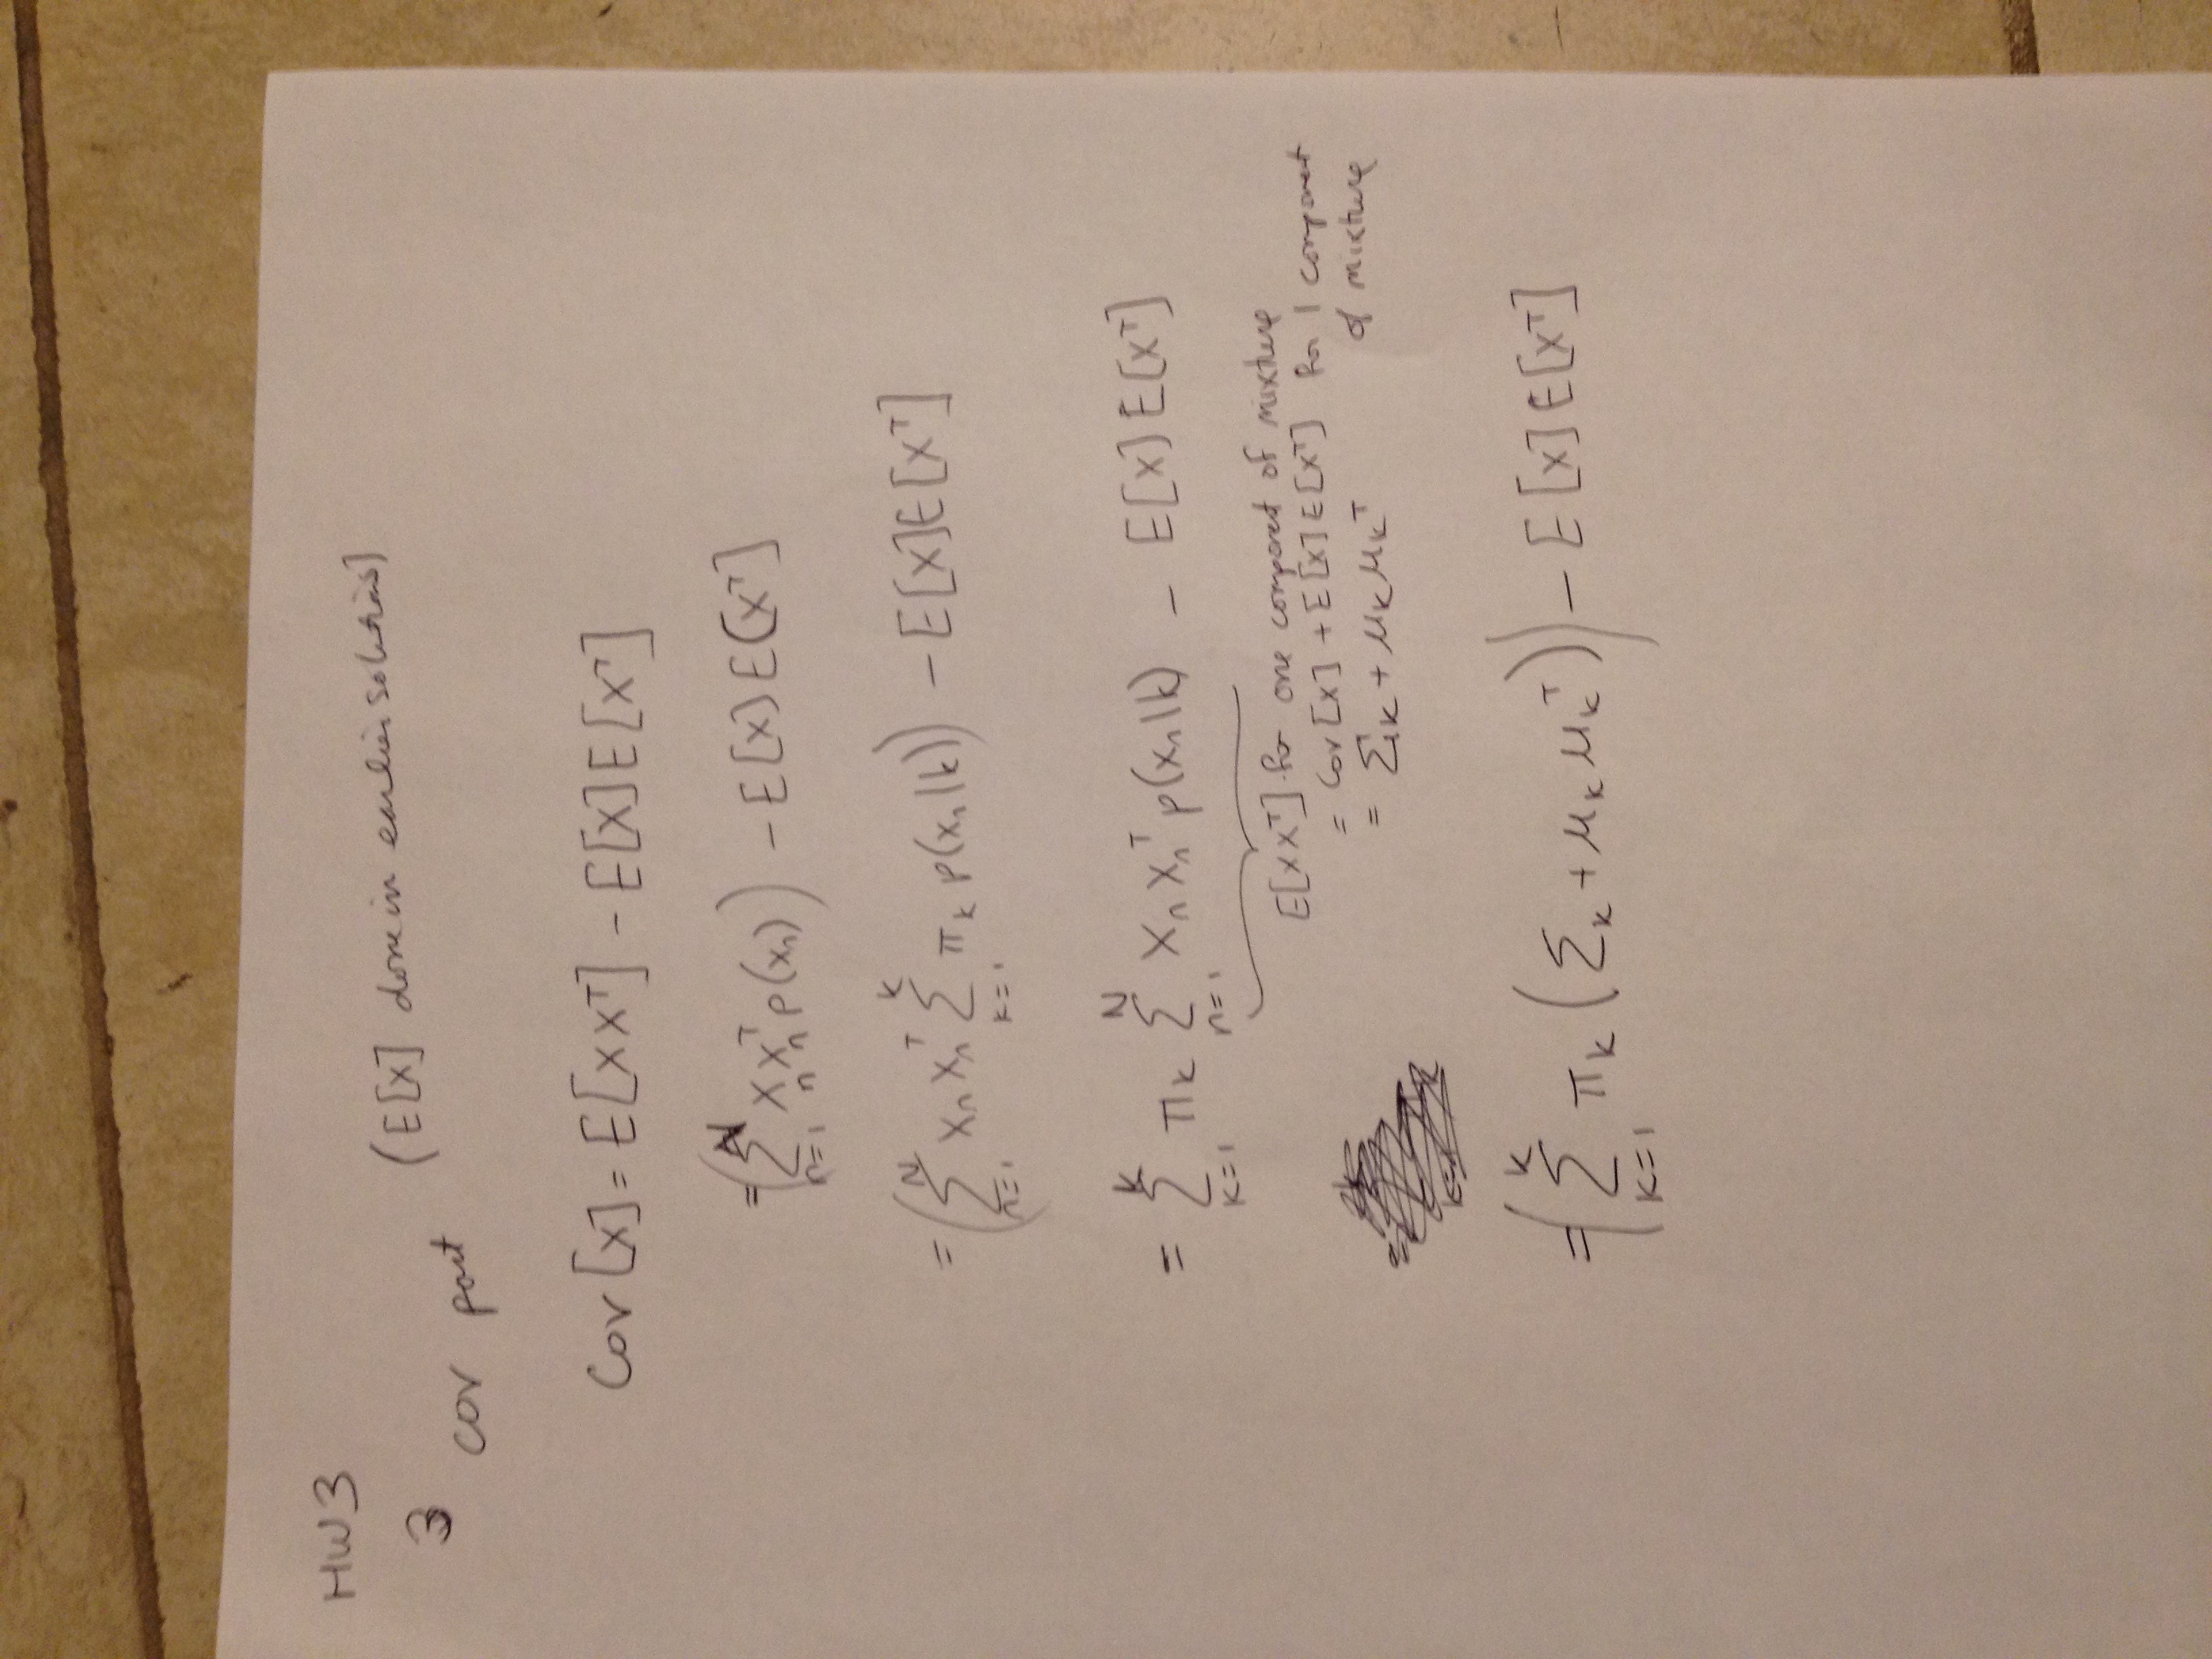 HW3
3 cov part (E[X] done in earlier solutions)
Cov[X] = E[XXᵀ] - E[X]E[Xᵀ]
= (∑ₙ₌₁ᴺ xₙxₙᵀ p(xₙ)) - E[X]E[Xᵀ]
= (∑ₙ₌₁ᴺ xₙxₙᵀ ∑ₖ₌₁ᴷ πₖ p(xₙ|k)) - E[X]E[Xᵀ]
= ∑ₖ₌₁ᴷ πₖ ∑ₙ₌₁ᴺ xₙxₙᵀ p(xₙ|k) - E[X]E[Xᵀ]
E[XXᵀ] for one component of mixture
= Cov[X] + E[X]E[Xᵀ] for 1 component
= Σₖ + μₖμₖᵀ of mixture
= (∑ₖ₌₁ᴷ πₖ (Σₖ + μₖμₖᵀ)) - E[X]E[Xᵀ]